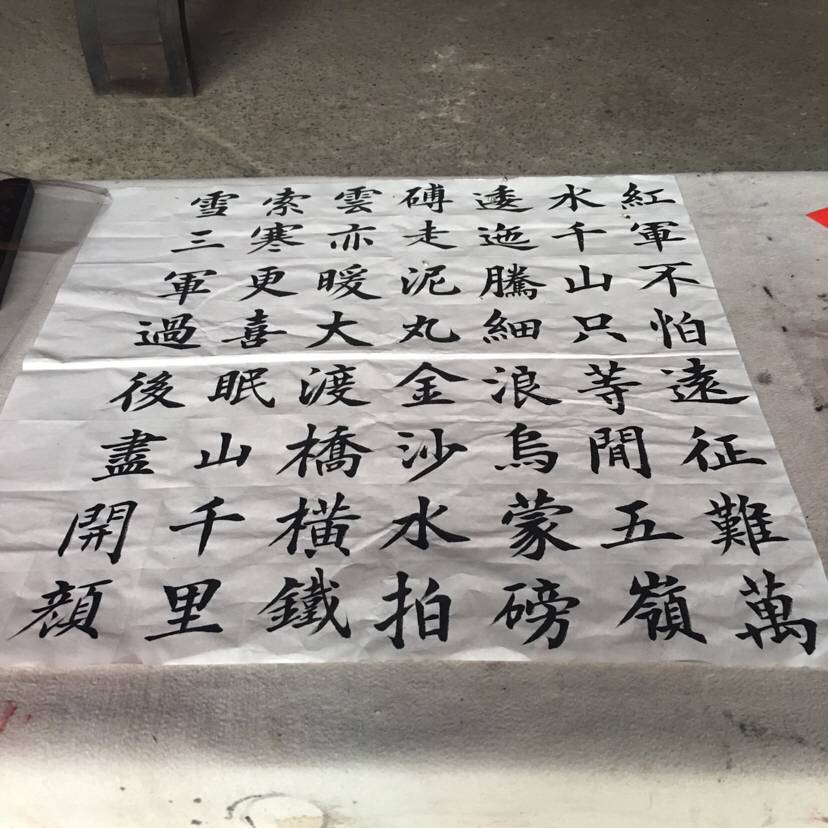 紅軍不怕遠征難萬
水千山只等閒五嶺
逶迤騰細浪烏蒙磅
礴走泥丸金沙水拍
雲亦暖大渡橋橫鐵
索寒更喜眠山千里
雪三軍過後盡開顏